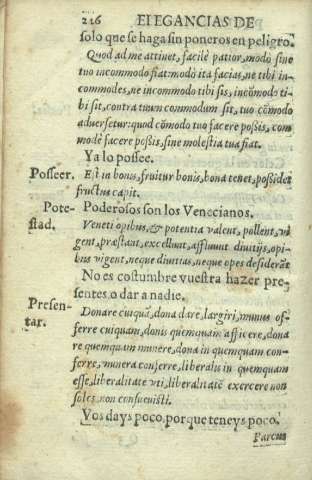 226 ELEGANCIAS DE
solo que se haga sin poneros en peligro.
Quod ad me attinet, facilè patior, modò sine
tuo incommodo fiat: modò ita facias, ne tibi in-
commodes, ne incommodo tibi sis, incōmodo ti-
bi sit, contra tuum commodum sit, tuo cōmodo
aduersetur: quod cōmodo tuo facere possis, com
modè facere possis, sine molestia tua fiat.
Ya lo possee.
Posseer. Est in bonis, fruitur bonis, bona tenet, possidet
fructus capit.
Pote- Poderosos son los Venecianos.
stad. Veneti opibus, & potentia valent, pollent, vi
gent, præstant, excellunt, affluunt diuitijs, opi
bus vigent, neque diuitias, neque opes desiderāt
No es costumbre vuestra hazer pre-
sentes o dar a nadie.
Presen- Donare cuiquā, dona dare, largiri, munus of-
tar. ferre cuiquam, donis quemquam afficere, dona
re quemquam munere, dona in quemquam con-
ferre, munera conferre, liberalis in quemquam
esse, liberalitate vti, liberalitatē exercere non
soles, non consueuisti.
Vos days poco, porque teneys poco.
Parcus